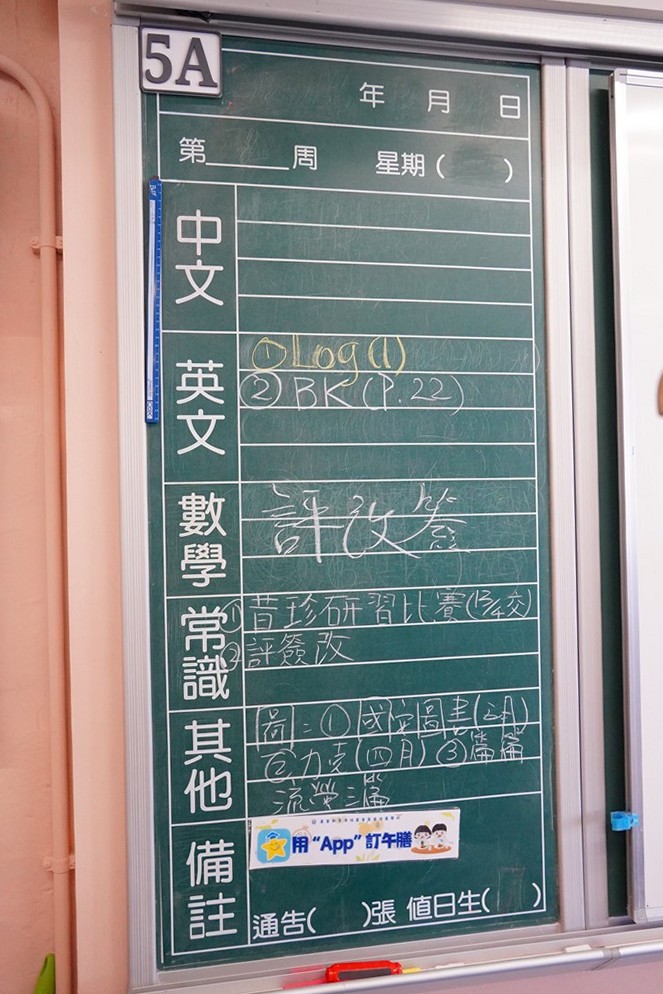 5A
年 月 日
第 周 星期( )
中文
英文
①Log(1)
②BK(P.22)
數學
評改簽
常識
①昔珍研習比賽(12/4交)
②評簽改
其他
①國安圖書(三月)
②力克(四月)③
流螢
備註
用“App”訂午膳
通告( )張 值日生( )